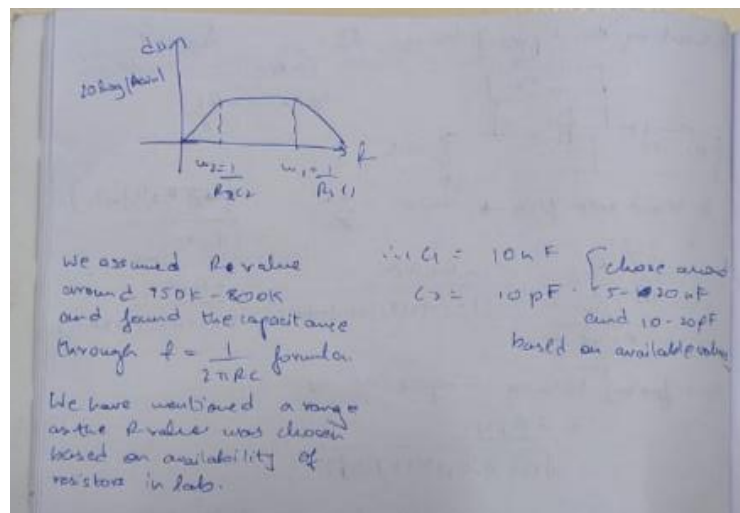 20 log |Av|
w2 = 1/R2C2
w1 = 1/R1C1
We assumed R value
around 750K - 800K
and found the capacitance
through f = 1/2πRC formula
We have mentioned a range
as the R value was chosen
based on availability of
resistors in lab.
C1 = 10nF
C2 = 10pF
chose around
5-20nF
and 10-20pF
based on available values